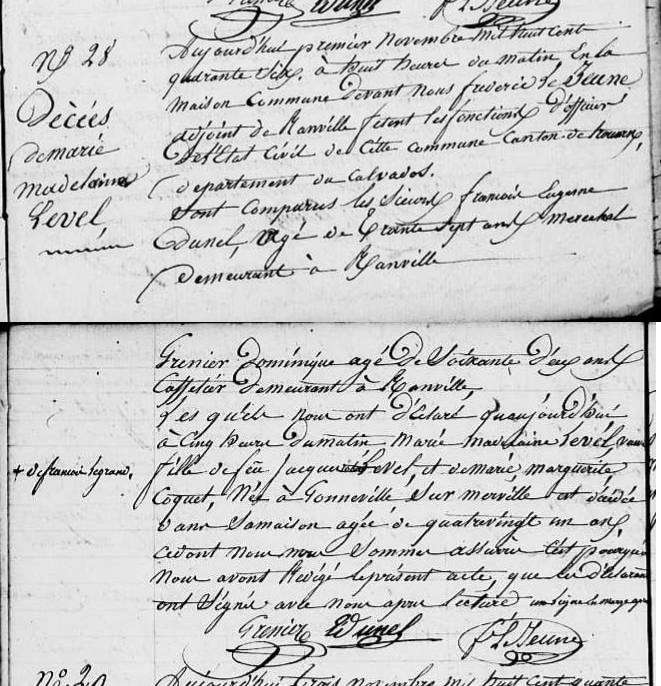 Grenier Dunel f. LeJeune
Nº 28
Décès
de marie
madelaine
Level,
Aujourd'hui premier Novembre mil huit cent
quarante Six, à huit heures du matin, En la
maison Commune Devant nous frederic Le Jeune
adjoint de Ranville fesant les fonctions D'officier
De l'Etat Civil de Cette Commune Canton de
departement du Calvados.
Sont Comparus les Sieurs françois Eugenne
Dunel, agé de trante Sept ans marechal
demeurant à Ranville
Grenier Dominique agé De Soixante Deux ans
Caffetier Demeurant à Ranville,
Les quels nous ont Déclaré quaujourd'hui
à Cinq heures Du matin Marie Madelaine Levél, veuve
+ de francois Legrand,
fille de feu Jacques Level, et de marie marguerite
Coquet, Née à Gonneville Sur merville est décédée
Dans Samaison agée de quatrevingt un ans
ce dont nous nous Sommes assurés C'est pourquoi
Nous avont Redigé le présent acte, que les Déclarans
ont Signé avec nous apres lecture
Grenier Dunel f. LeJeune
Nº 29
Aujourd'hui trois novembre mil huit cent quarante